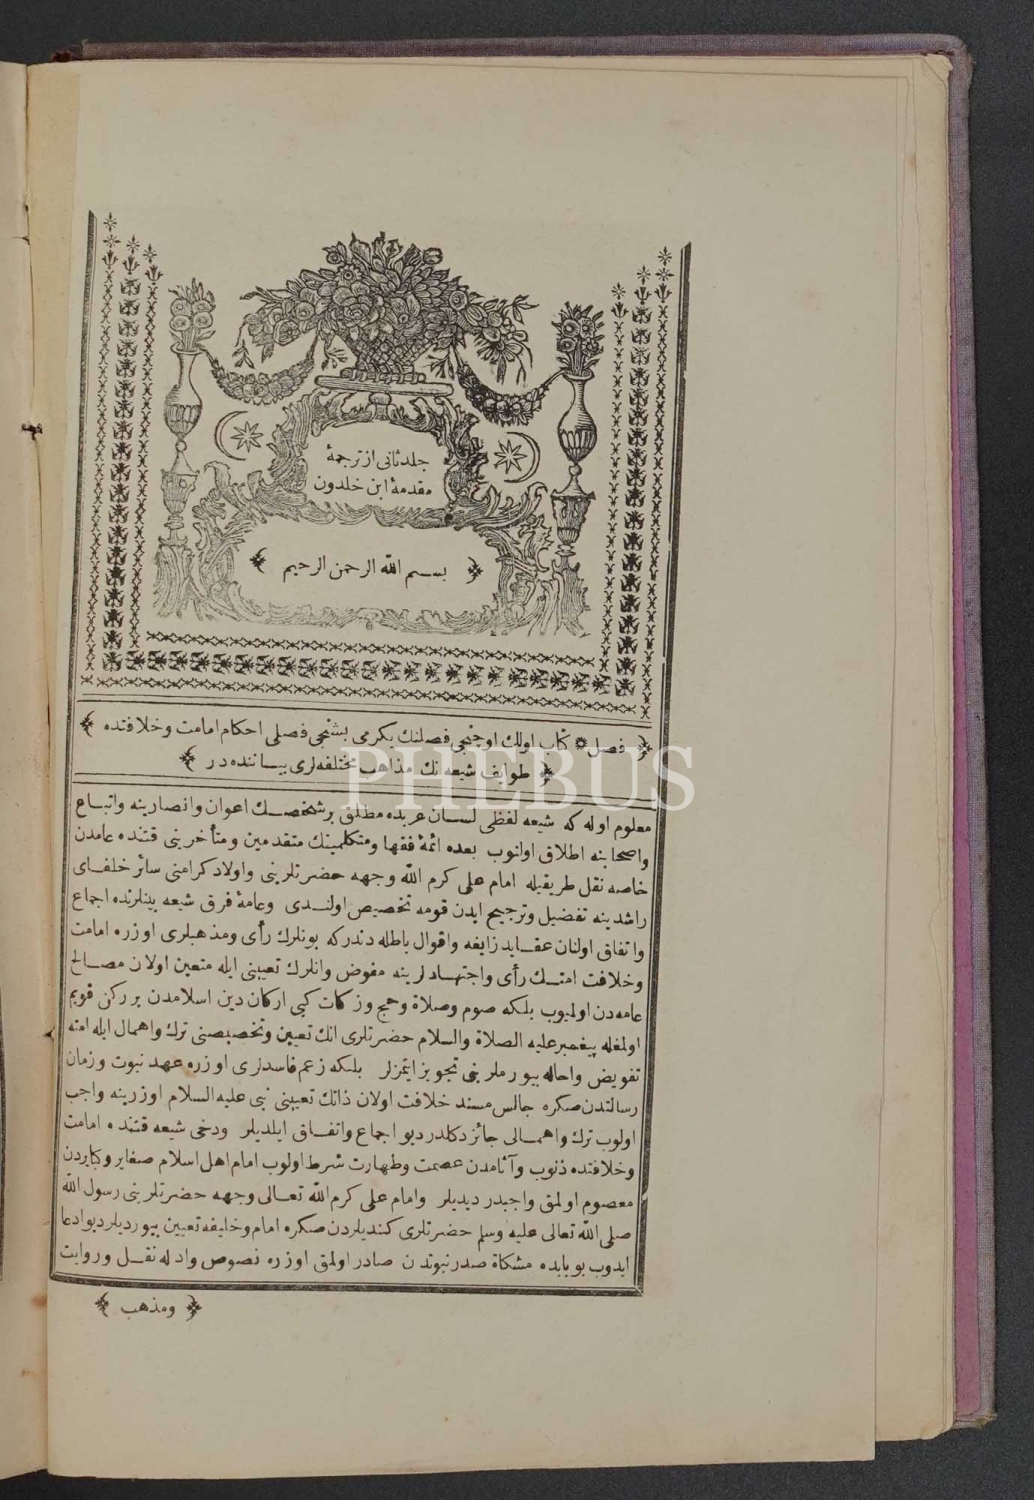 جلد ثانی از ترجمۀ
مقدمۀ ابن خلدون
بسم الله الرحمن الرحیم
فصل * کتاب اولك اوچنجی فصلنك یکرمی بشنجی فصلی احکام امامت و خلافتده
طوایف شیعه نك مذاهب مختلفه لری بیاننده در
PHEBUS
معلوم اوله که شیعه لفظی لسان عربده مطلق بر شخصك اعوان وانصارینه واتباع
واصحابنه اطلاق اولنوب بعده ائمۀ فقها ومتکلمینك متقدمین ومتأخرینی قتنده عامدن
خاصه نقل طریقیله امام علی کرم الله وجهه حضرتلرینی واولاد کرامنی سائر خلفای
راشدینه تفضیل وترجیح ایدن قومه تخصیص اولندی وعامۀ فرق شیعه بینلرنده اجماع
واتفاق اولنان عقاید زایفه واقوال باطله دندرکه بونلرك رأی ومذهبلری اوزره امامت
وخلافت امتك رأی واجتهادلرینه مفوض وانلرك تعیینی ایله متعین اولان مصالح
عامه دن اولمیوب بلکه صوم وصلاة وحج وزکات کبی ارکان دین اسلامدن بر رکن قویم
اولمغله پیغمبر علیه الصلاة والسلام حضرتلری انك تعیین وتخصیصنی ترك واهمال ایله امته
تفویض واحاله بیورملرینی تجویز ایتمزلر بلکه زعم فاسدلری اوزره عهد نبوت وزمان
رسالتدن صکره جالس مسند خلافت اولان ذاتك تعیینی نبی علیه السلام اوزرینه واجب
اولوب ترك واهمالی جائز دکلدر دیو اجماع واتفاق ایلدیلر ودخی شیعه قتنده امامت
وخلافتده ذنوب وآثامدن عصمت وطهارت شرط اولوب امام اهل اسلام صغایر وکبایردن
معصوم اولمق واجبدر دیدیلر وامام علی کرم الله تعالی وجهه حضرتلرینی رسول الله
صلی الله تعالی علیه وسلم حضرتلری کندیلردن صکره امام وخلیفه تعیین بیوردیلر دیو ادعا
ایدوب بو بابده مشکاة صدر نبوتدن صادر اولمق اوزره نصوص وادله نقل وروایت
ومذهب